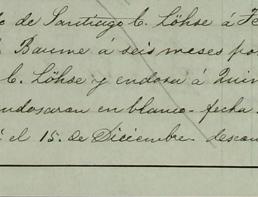 de Santiago C. Löhse á Fe
Baume á seis meses po
C. Löhse y endosa á Quin
endosaron en blanco - fecha
el 15. de Diciembre descon